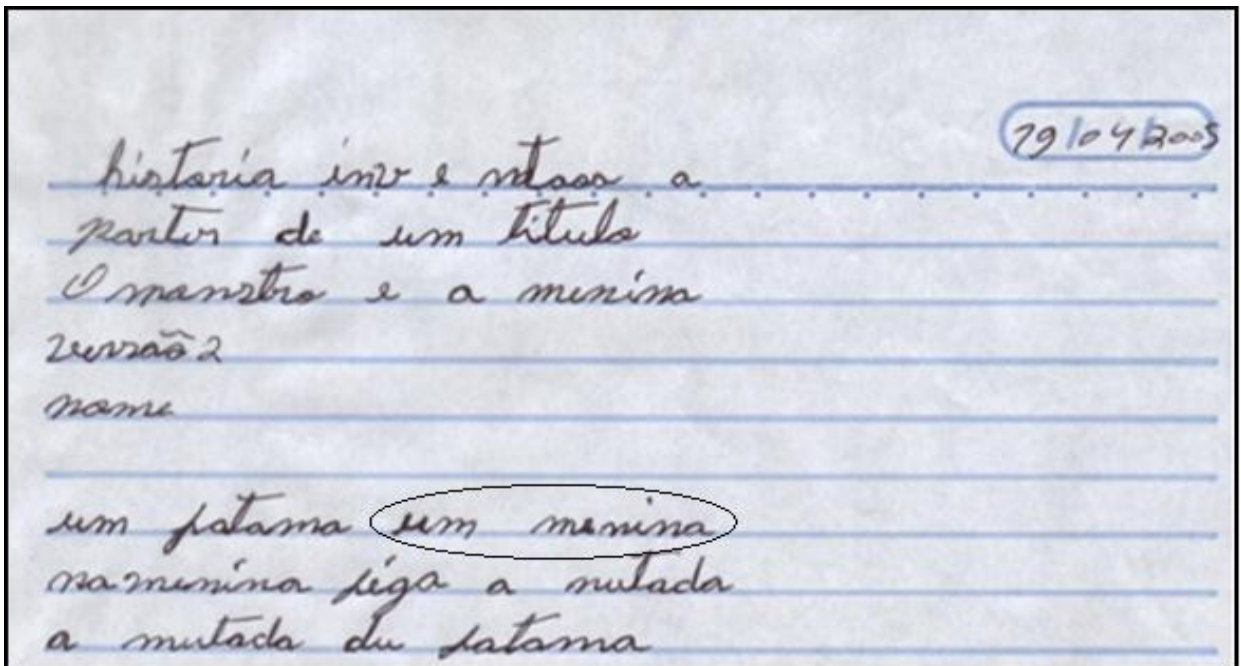 19/04/2005
historia inv e ntaar a
partir de um titulo
O monstro e a menina
versão 2
nome
um fatama um menina
namenina séga a mutada
a mutada du fatama